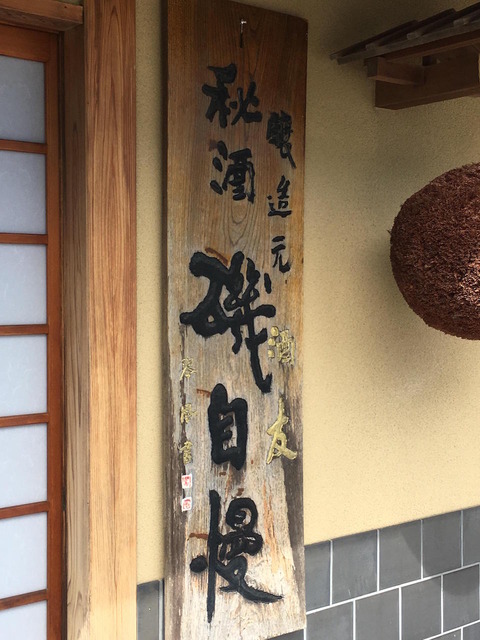 醸造元
酒友
秘酒
磯自慢